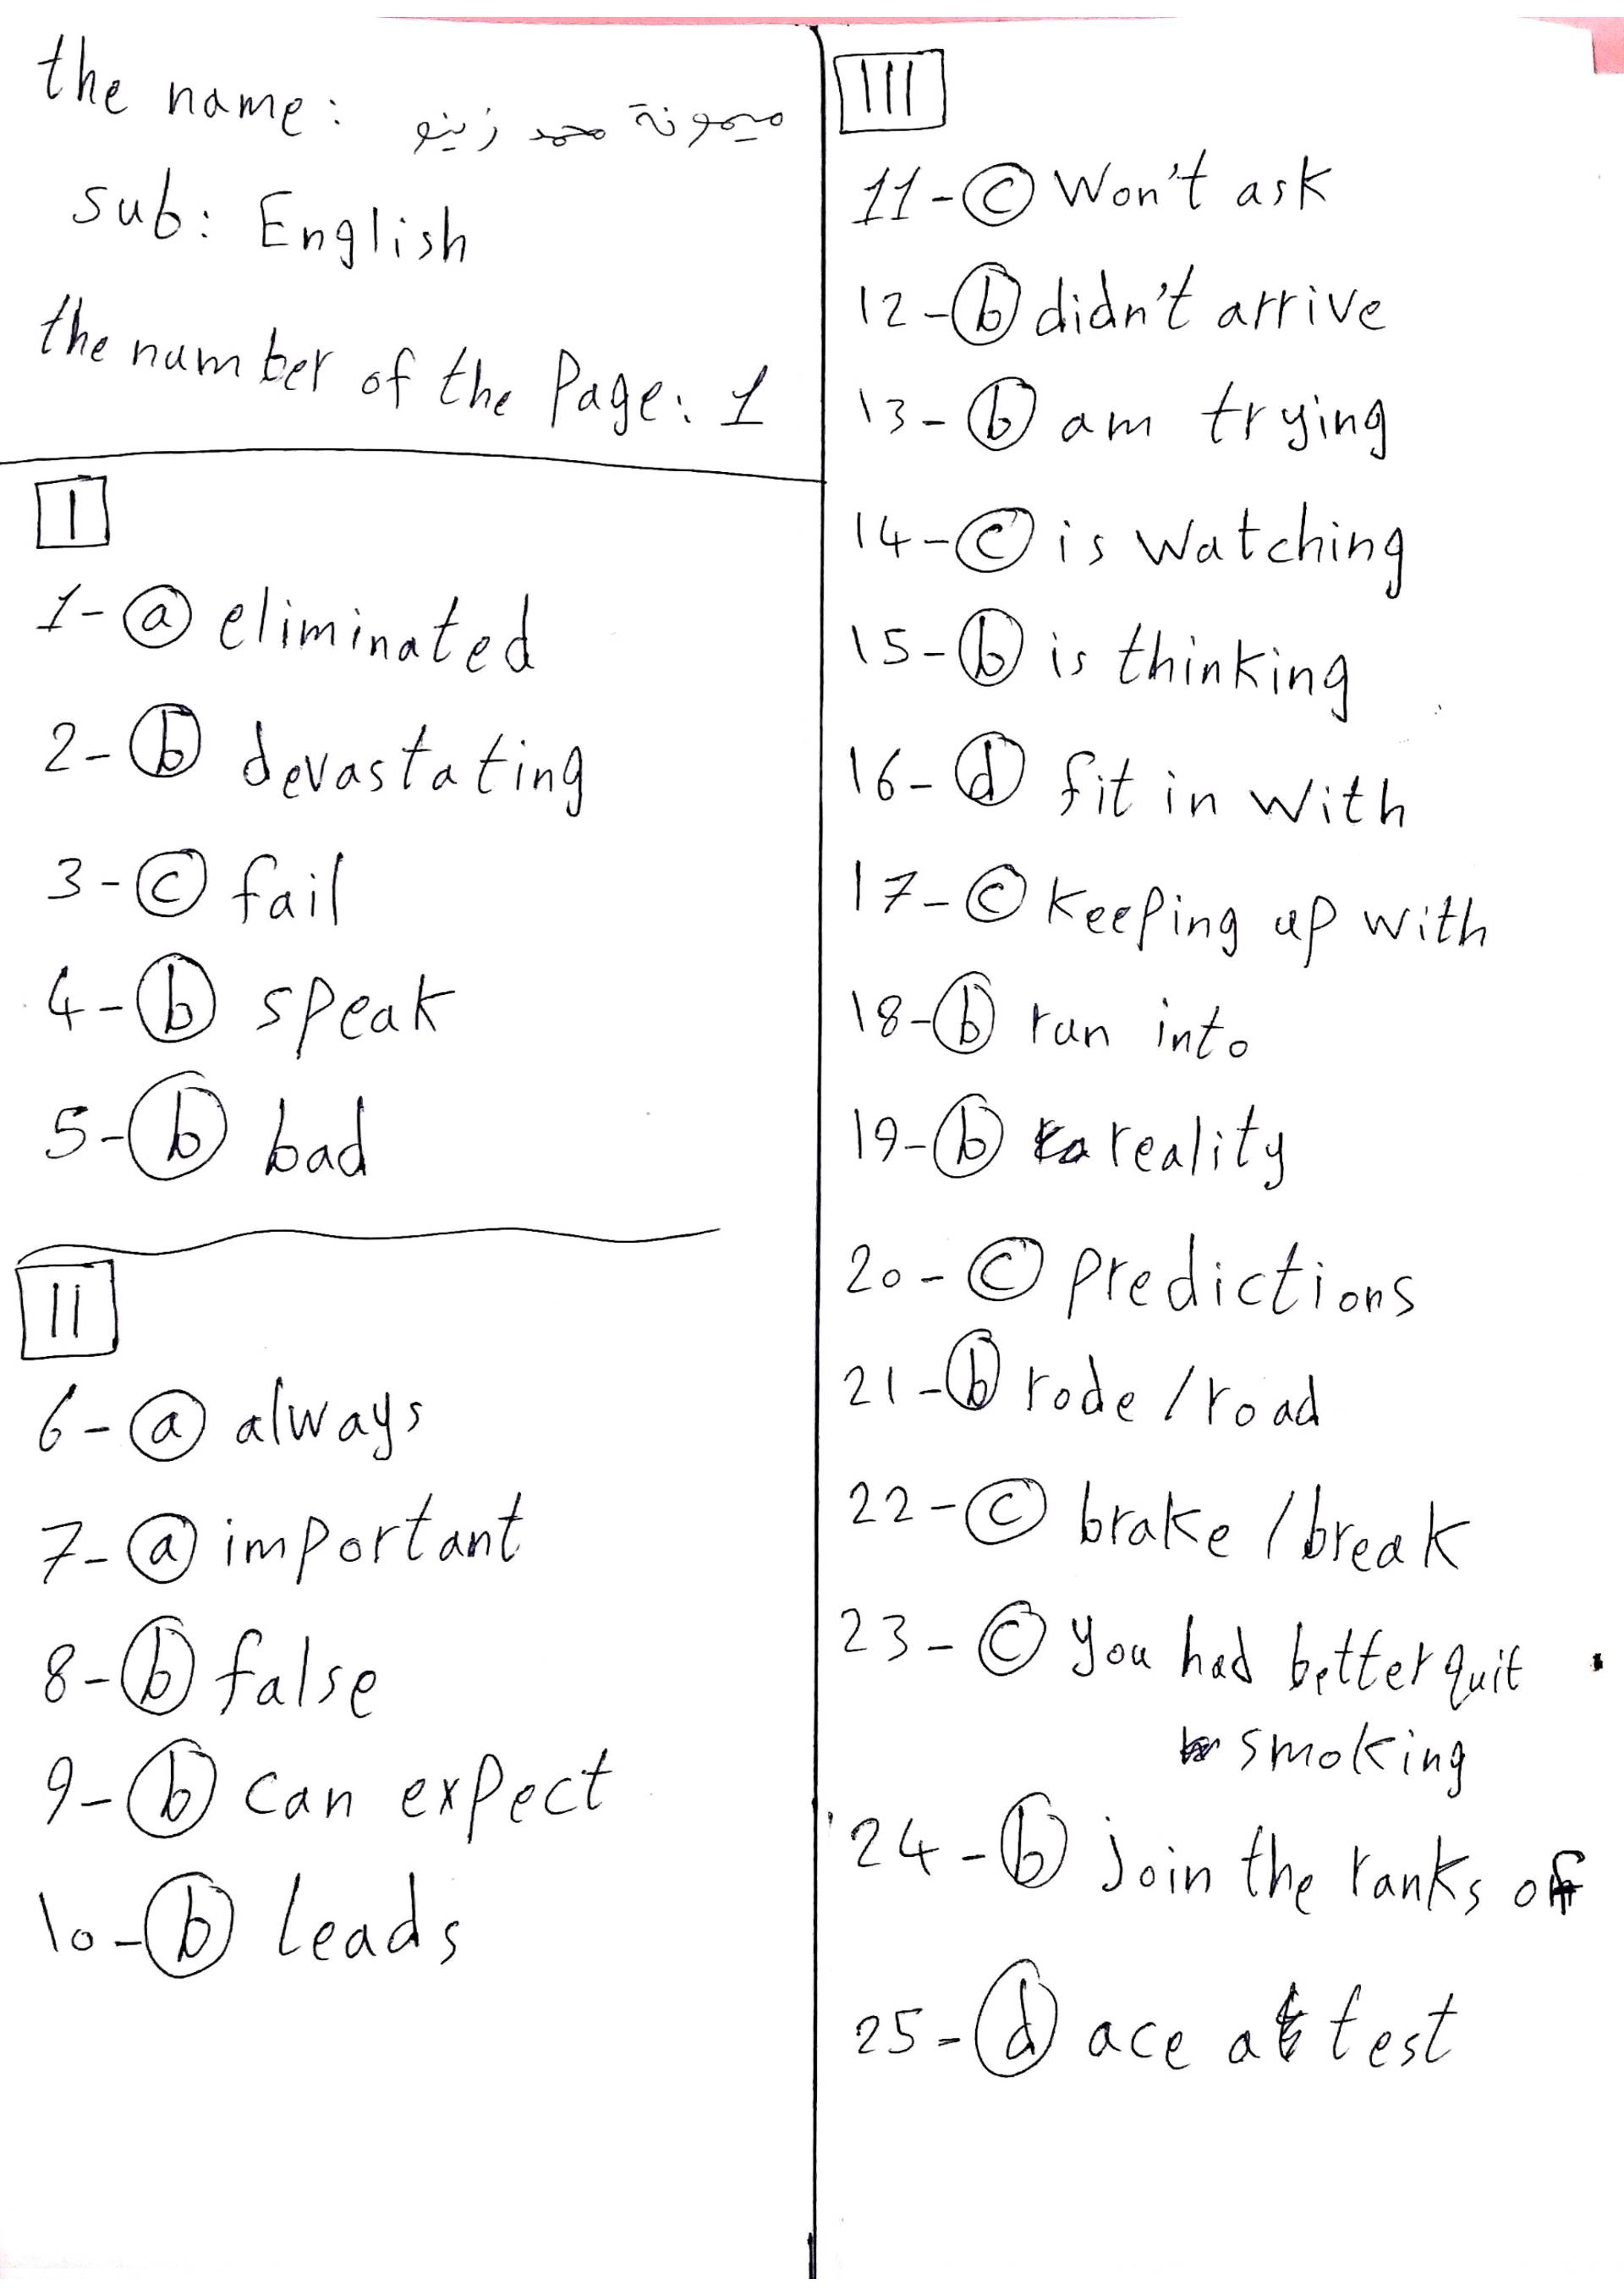 the name: ميمونة محمد زينو
sub: English
the number of the Page: 1
I
1- a eliminated
2- b devastating
3- c fail
4- b speak
5- b bad
II
6- a always
7- a important
8- b false
9- b can expect
10- b leads
III
11- c Won't ask
12- b didn't arrive
13- b am trying
14- c is watching
15- b is thinking
16- d fit in with
17- c keeping up with
18- b run into
19- b reality
20- c predictions
21- b rode / road
22- c brake / break
23- c you had better quit
smoking
24- b join the ranks of
25- d ace a test